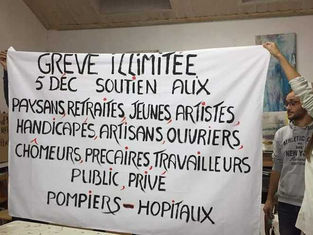 GRÈVE ILLIMITÉE
5 DÉC SOUTIEN AUX
PAYSANS, RETRAITÉS, JEUNES, ARTISTES,
HANDICAPÉS, ARTISANS, OUVRIERS,
CHÔMEURS, PRÉCAIRES, TRAVAILLEURS
PUBLIC, PRIVÉ
POMPIERS - HOPITAUX
ATHLETIC
NEW